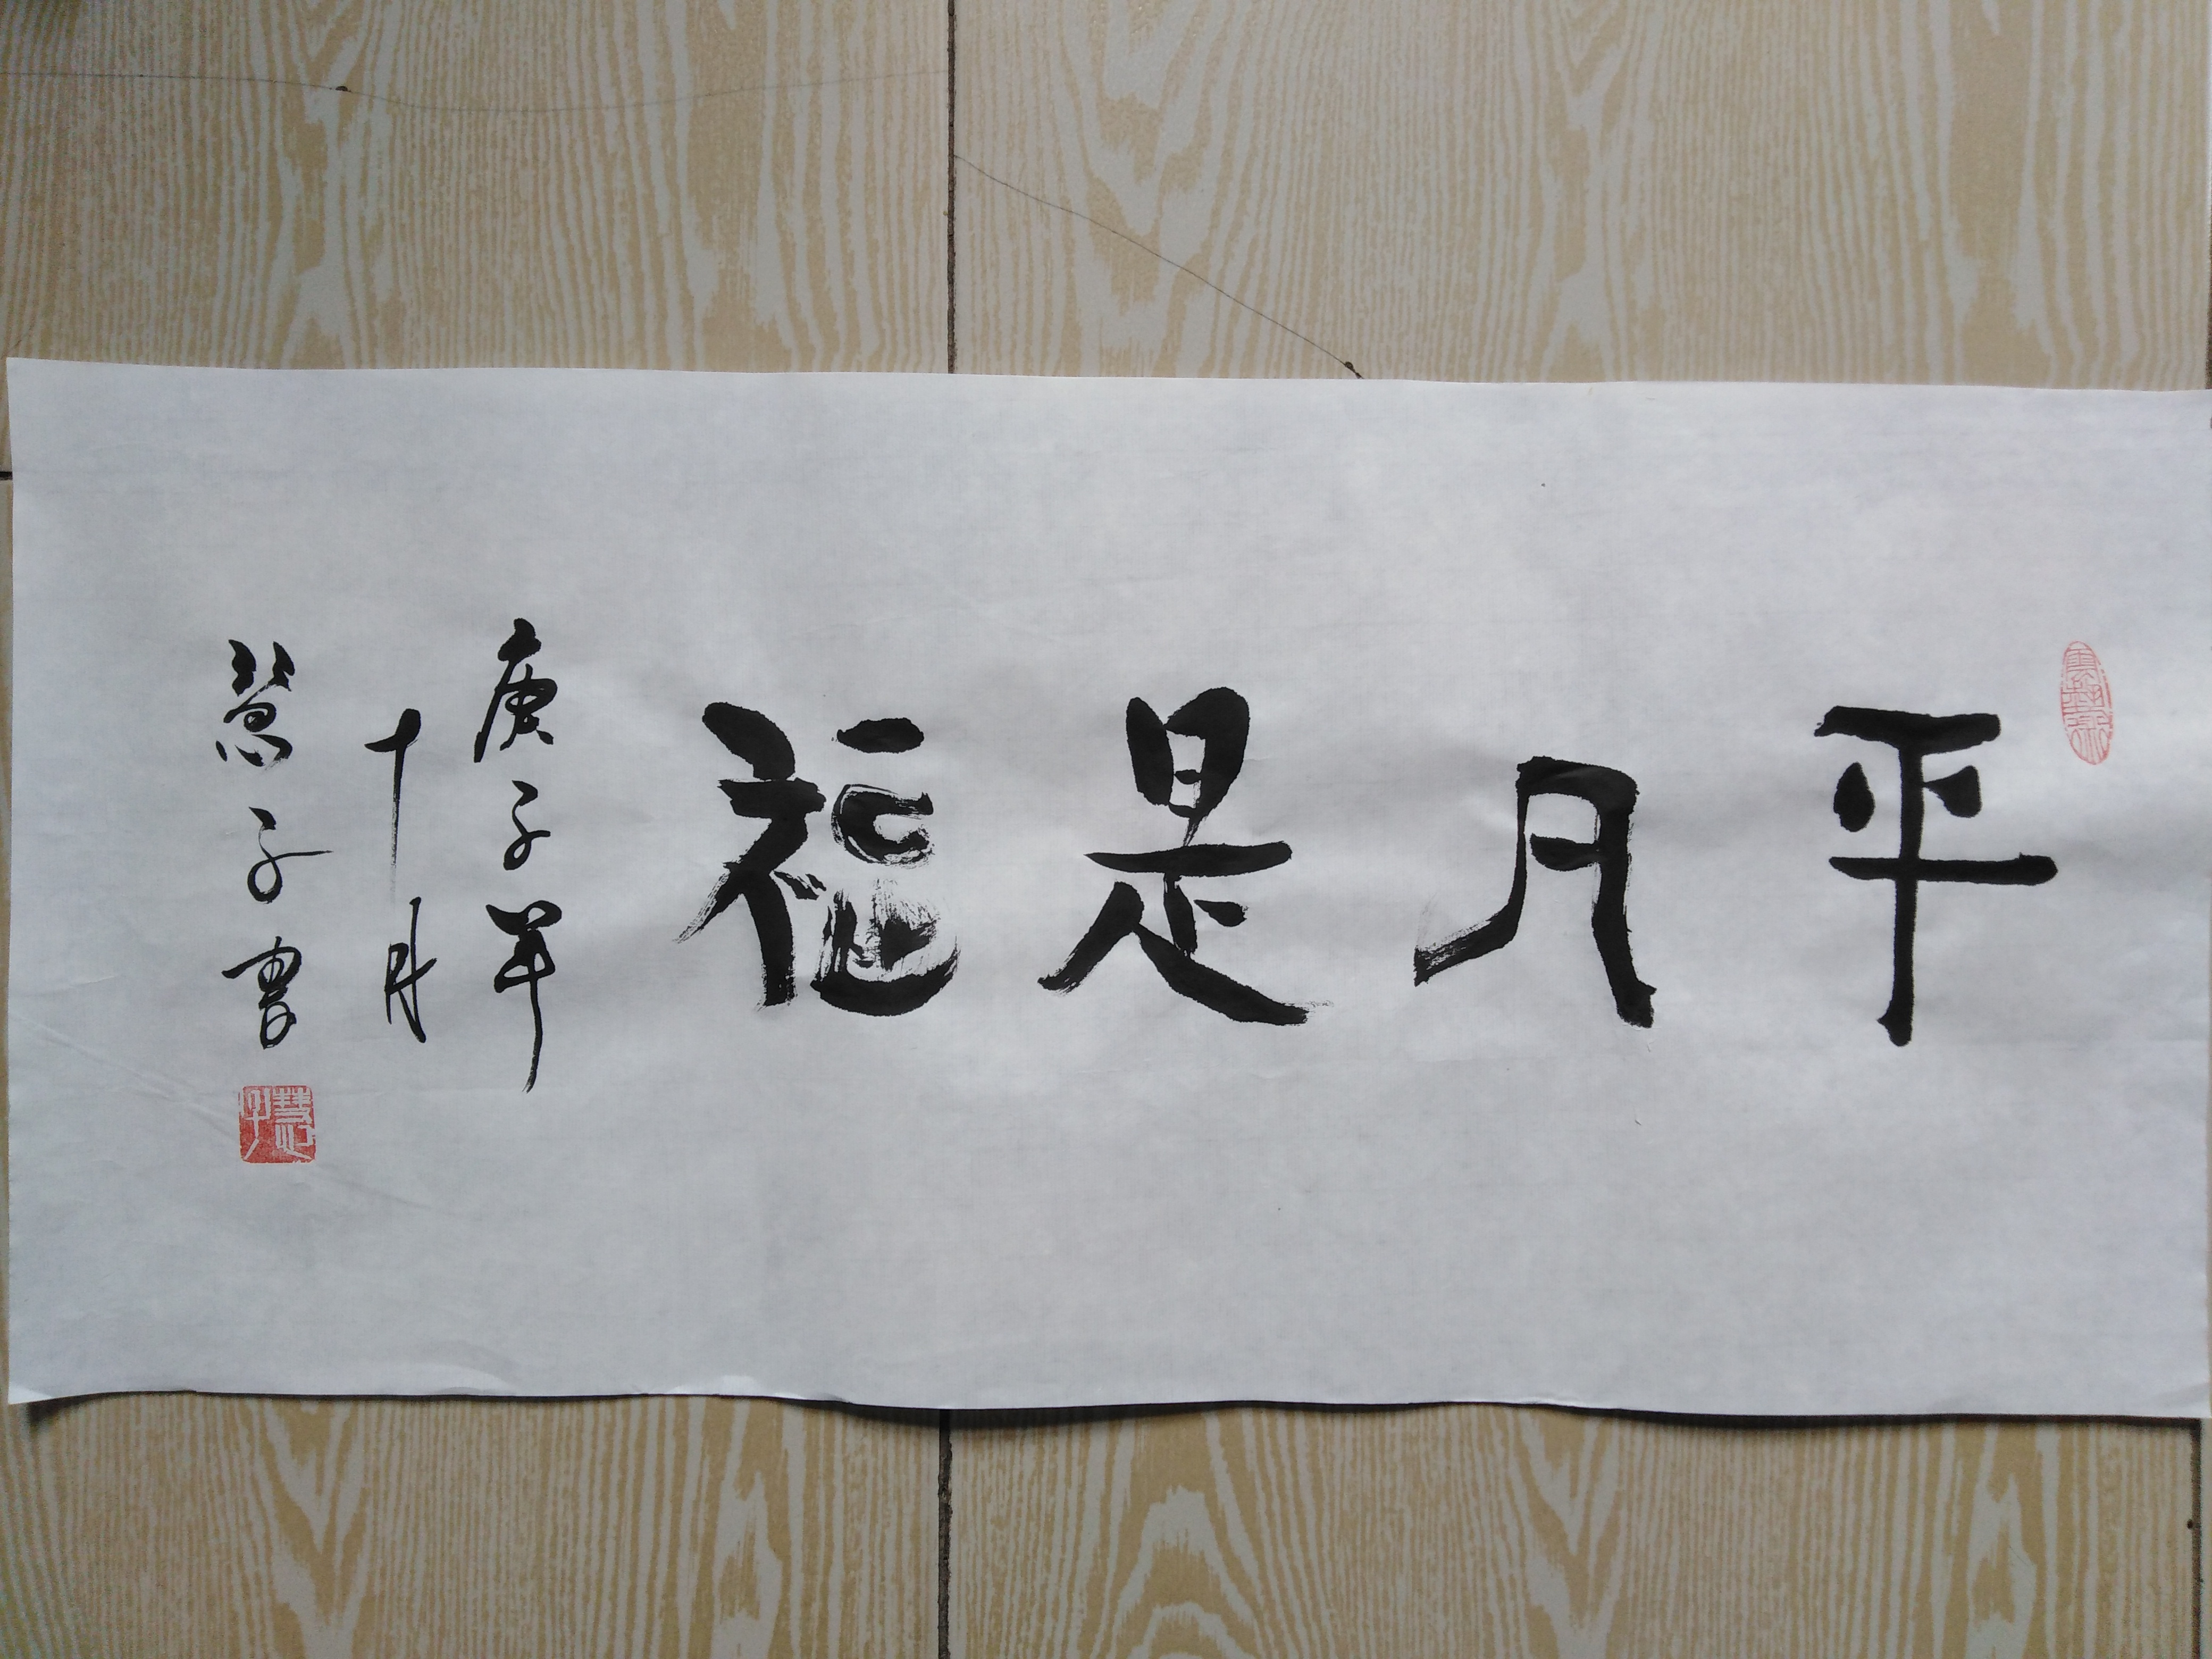 平凡是福
庚子年
十月
慧子書
慧子